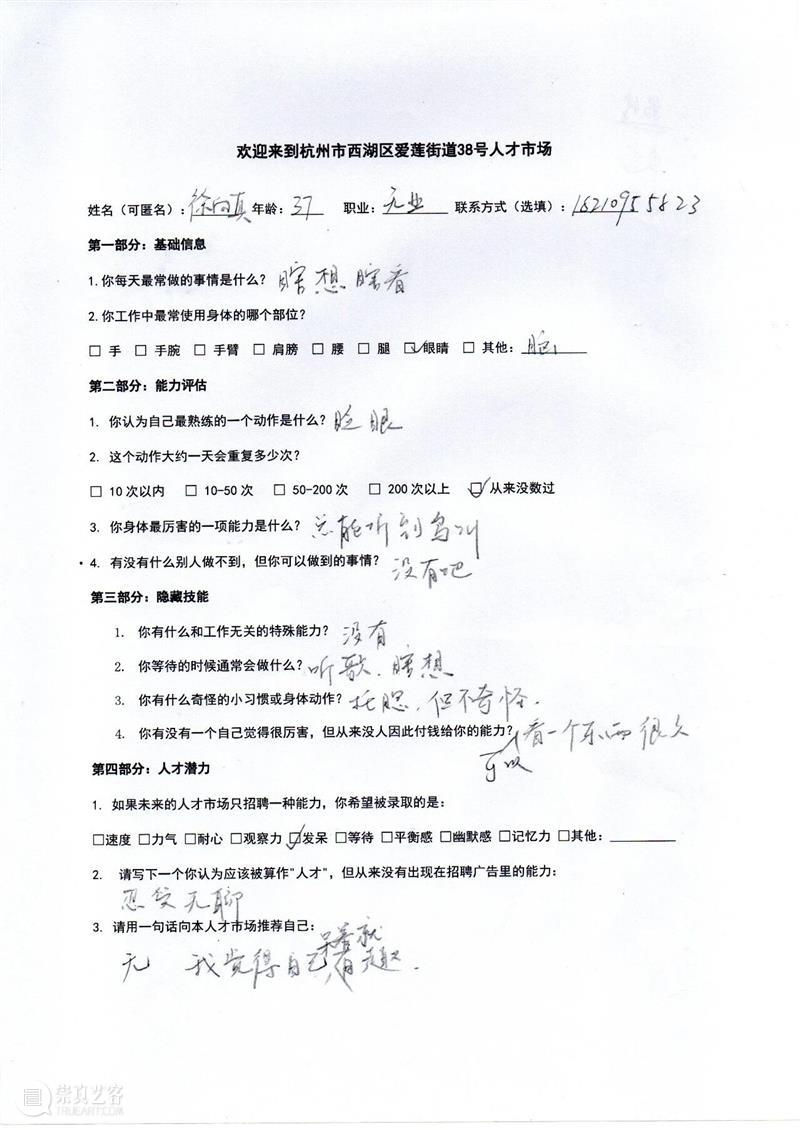 欢迎来到杭州市西湖区爱莲街道38号人才市场
姓名（可匿名）：徐向真 年龄：37 职业：无业 联系方式（选填）：16210955823
第一部分：基础信息
1.你每天最常做的事情是什么？瞎想 瞎看
2.你工作中最常使用身体的哪个部位？
□ 手 □ 手腕 □ 手臂 □ 肩膀 □ 腰 □ 腿 ☑眼睛 □ 其他：脑
第二部分：能力评估
1. 你认为自己最熟练的一个动作是什么？眨眼
2. 这个动作大约一天会重复多少次？
□ 10 次以内 □ 10-50 次 □ 50-200 次 □ 200 次以上 ☑ 从来没数过
3. 你身体最厉害的一项能力是什么？总能听到鸟叫
4. 有没有什么别人做不到，但你可以做到的事情？没有吧
第三部分：隐藏技能
1. 你有什么和工作无关的特殊能力？没有
2. 你等待的时候通常会做什么？听歌、瞎想
3. 你有什么奇怪的小习惯或身体动作？托腮，但不奇怪.
4. 你有没有一个自己觉得很厉害，但从来没人因此付钱给你的能力？可以看一个东西很久
第四部分：人才潜力
1. 如果未来的人才市场只招聘一种能力，你希望被录取的是：
□速度 □力气 □耐心 □观察力 ☑发呆 □等待 □平衡感 □幽默感 □记忆力 □其他：
2. 请写下一个你认为应该被算作"人才"，但从来没有出现在招聘广告里的能力：
忍受无聊
3. 请用一句话向本人才市场推荐自己：
无 我觉得自己呆着就有趣.
崇真艺客
TRUEART.COM